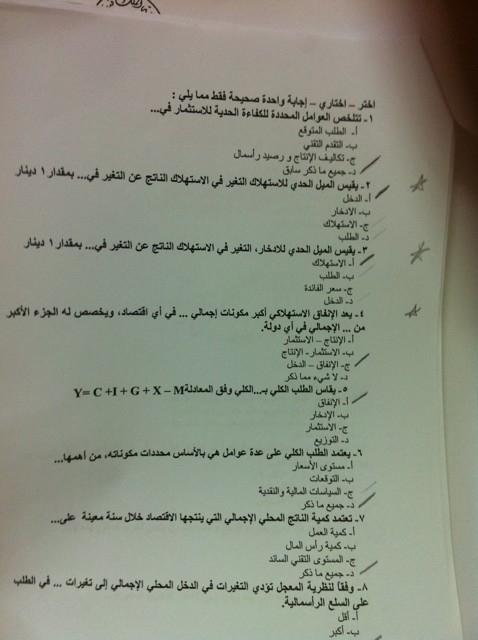 اختر – اختاري – إجابة واحدة صحيحة فقط مما يلي :
١- تتلخص العوامل المحددة للكفاءة الحدية للاستثمار في...
أ- الطلب المتوقع
ب- التقدم التقني
ج- تكاليف الإنتاج و رصيد رأسمال
د- جميع ما ذكر سابق
٢- يقيس الميل الحدي للاستهلاك التغير في الاستهلاك الناتج عن التغير في... بمقدار ١ دينار
أ- الدخل
ب- الادخار
ج- الاستهلاك
د- الطلب
٣- يقيس الميل الحدي للادخار، التغير في الاستهلاك الناتج عن التغير في... بمقدار ١ دينار
أ- الاستهلاك
ب- الطلب
ج- سعر الفائدة
د- الدخل
٤- يعد الإنفاق الاستهلاكي أكبر مكونات إجمالي ... في أي اقتصاد، ويخصص له الجزء الأكبر
من ... الإجمالي في أي دولة.
أ- الإنتاج – الاستثمار
ب- الاستثمار- الإنتاج
ج- الإنفاق – الدخل
د- لا شيء مما ذكر
٥- يقاس الطلب الكلي بـ...الكلي وفق المعادلة Y= C +I + G + X – M
أ- الإنفاق
ب- الإدخار
ج- الاستثمار
د- التوزيع
٦- يعتمد الطلب الكلي على عدة عوامل هي بالأساس محددات مكوناته، من أهمها...
أ- مستوى الأسعار
ب- التوقعات
ج- السياسات المالية والنقدية
د- جميع ما ذكر
٧- تعتمد كمية الناتج المحلي الإجمالي التي ينتجها الاقتصاد خلال سنة معينة على...
أ- كمية العمل
ب- كمية رأس المال
ج- المستوى التقني السائد
د- جميع ما ذكر
٨- وفقاً لنظرية المعجل تؤدي التغيرات في الدخل المحلي الإجمالي إلى تغيرات ... في الطلب
على السلع الرأسمالية.
أ- أقل
ب- أكبر